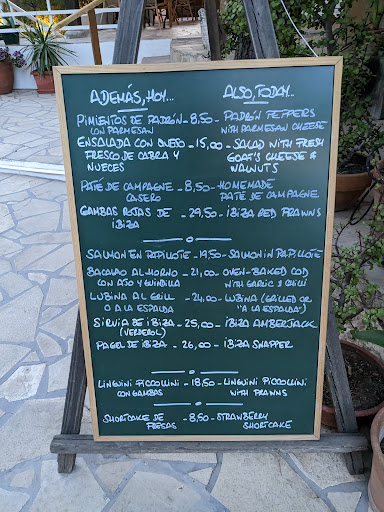 ADEMÁS, HOY... ALSO, TODAY...
PIMIENTOS DE PADRÓN - 8,50 - PADRÓN PEPPERS
CON PARMESAN WITH PARMESAN CHEESE
ENSALADA CON QUESO - 15,00 - SALAD WITH FRESH
FRESCO DE CABRA Y GOAT'S CHEESE &
NUECES WALNUTS
PATÉ DE CAMPAGNE - 8,50 - HOMEMADE
CASERO PATÉ DE CAMPAGNE
GAMBAS ROJAS DE - 29,50 - IBIZA RED PRAWNS
IBIZA
SALMON EN PAPILLOTE - 19,50 - SALMON IN PAPILLOTE
BACALAO AL HORNO - 21,00 - OVEN-BAKED COD
CON AJO Y GUINDILLA WITH GARLIC & CHILI
LUBINA AL GRILL - 24,00 - LUBINA (GRILLED OR
O A LA ESPALDA "A LA ESPALDA")
SIRVIA DE IBIZA - 25,00 - IBIZA AMBERJACK
(VERDEROL)
PAGEL DE IBIZA - 26,00 - IBIZA SNAPPER
LINGUINI PICCOLLINI - 18,50 - LINGUINI PICCOLLINI
CON GAMBAS WITH PRAWNS
SHORTCAKE DE - 8,50 - STRAWBERRY
FRESAS SHORTCAKE